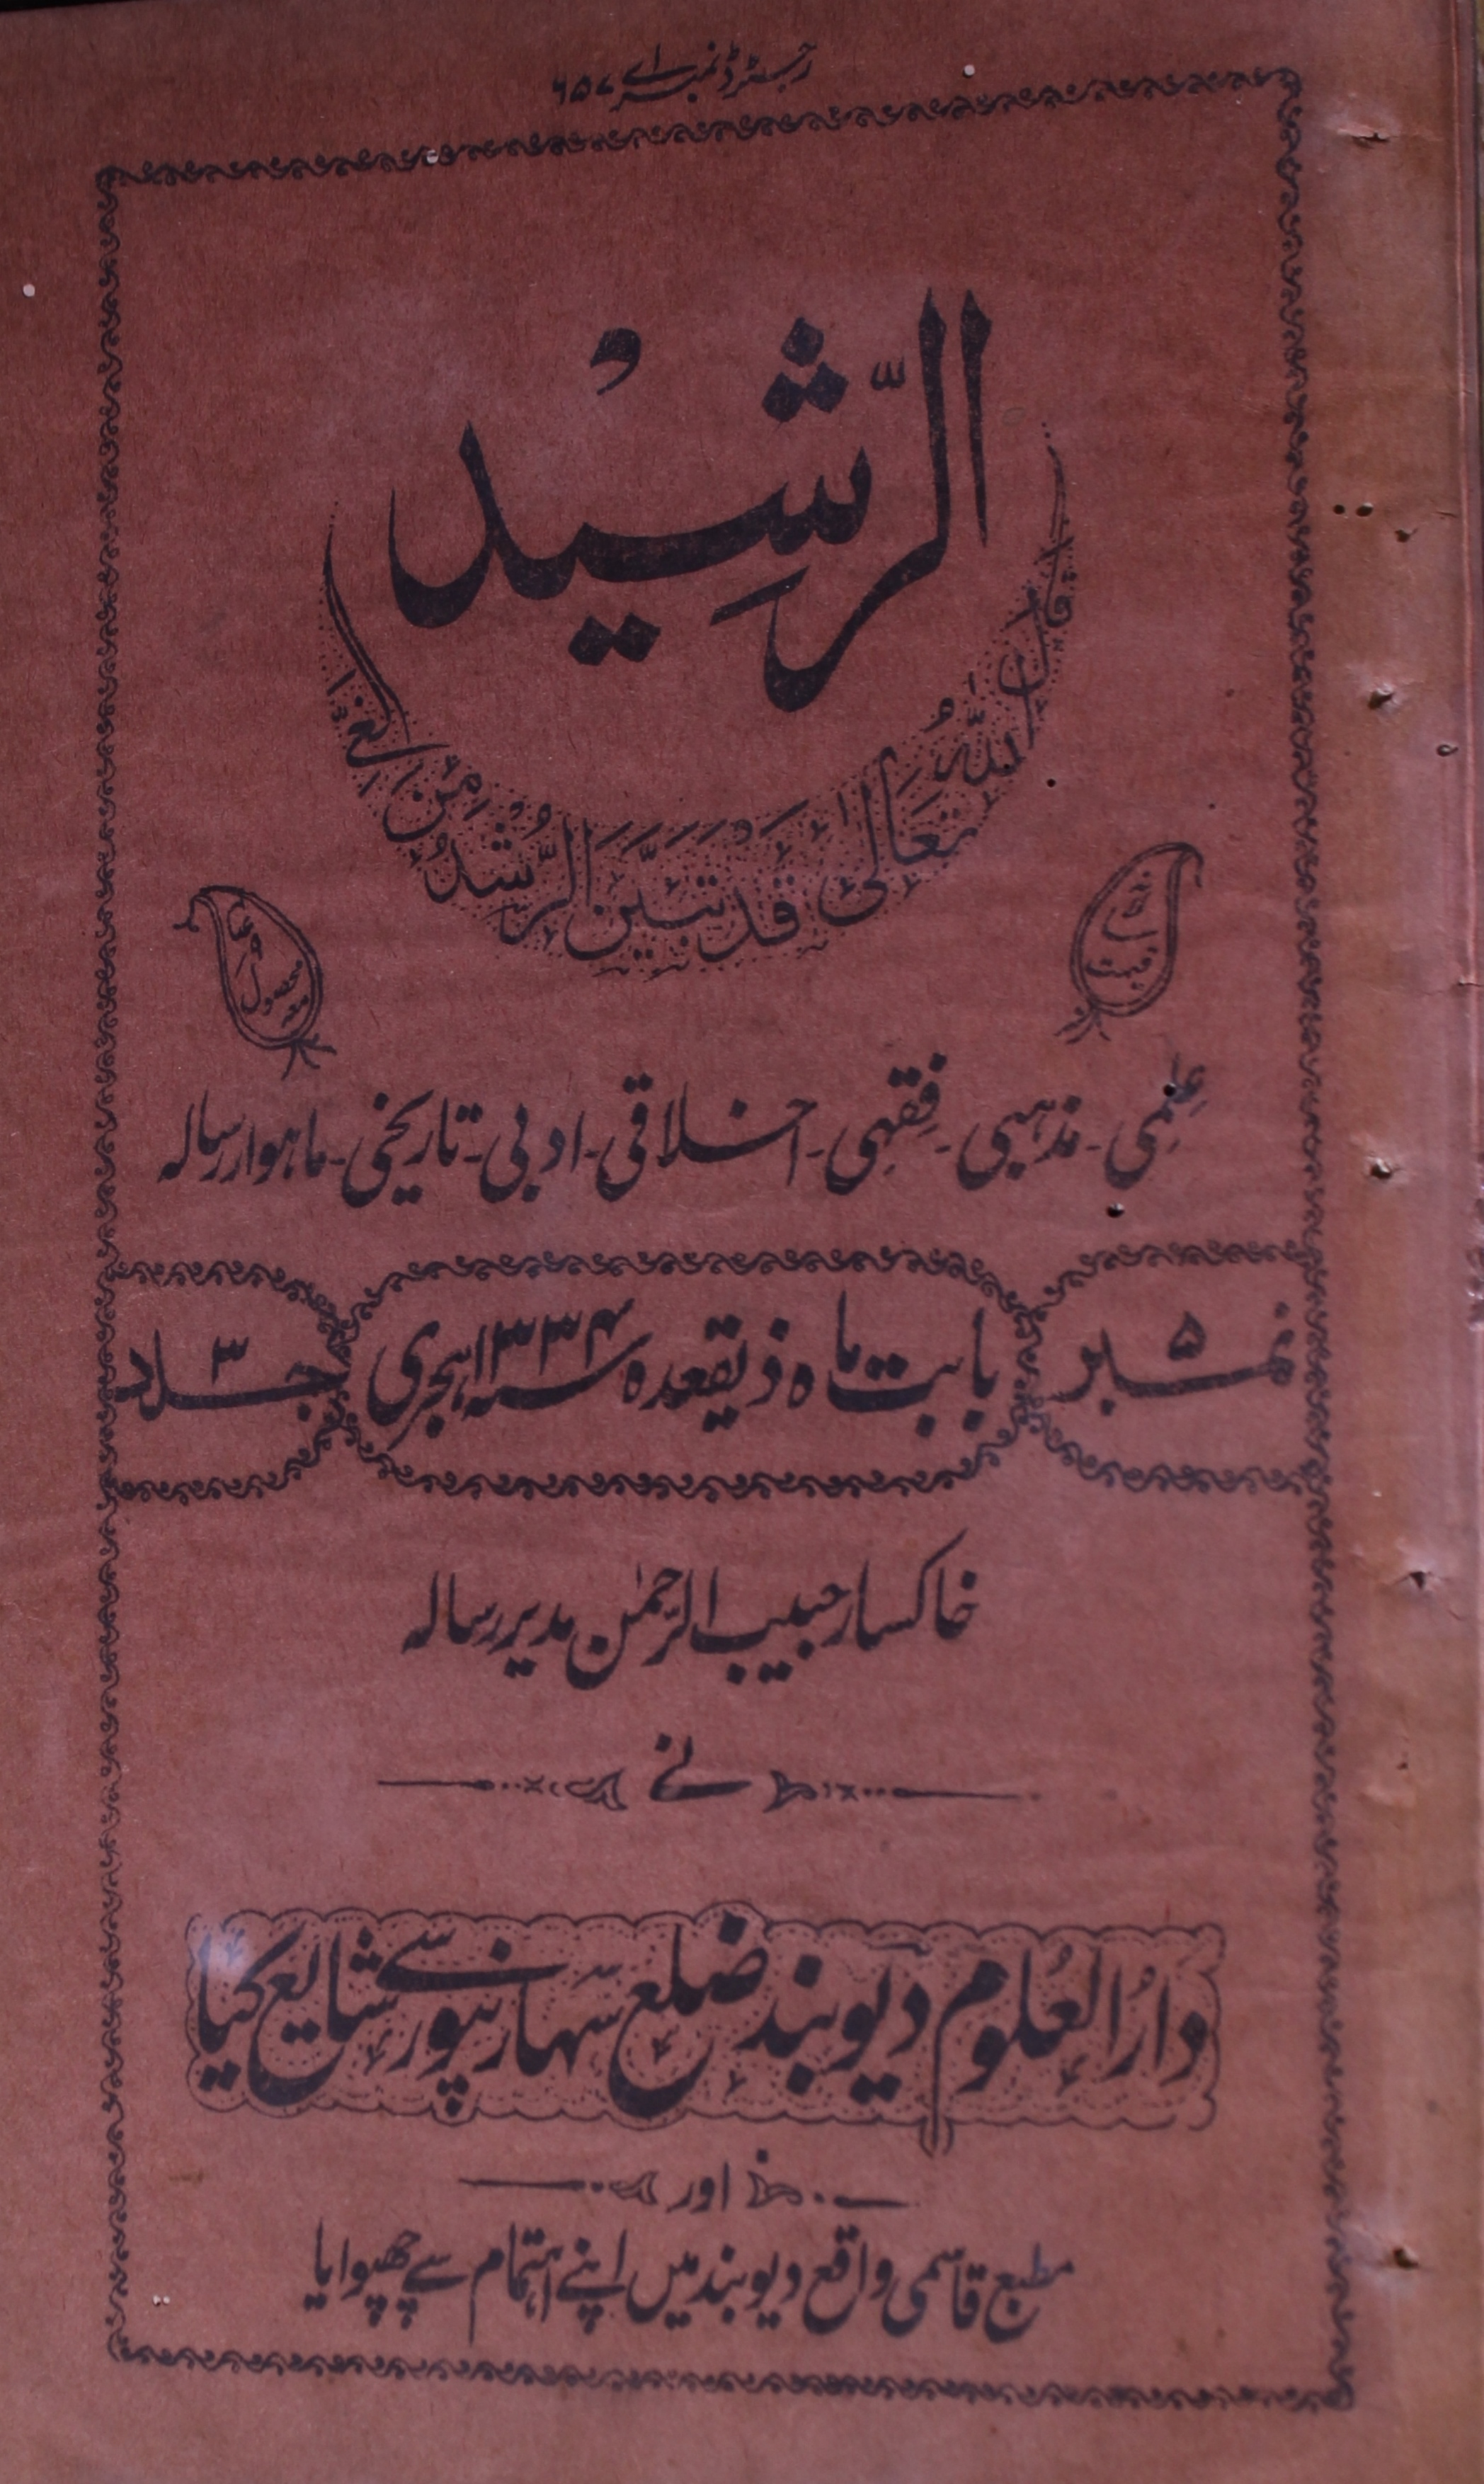 رجسٹرڈ نمبر اے ۶۵۷
الرّشِیْد
قال اللہُ تعالیٰ قَدْ تَبَیَّنَ الرُّشْدُ مِنَ الْغَیِّ
قیمت
معہ محصول
عِلمِی ۔ مذہبی ۔ فِقہِی ۔ اخلاقی ۔ ادبی ۔ تاریخی ۔ ماہوار رسالہ
نمبر ۵
بابت ماہ ذیقعدہ سنہ ۱۳۳۴ ہجری
جلد ۳
خاکسار حبیب الرّحمٰن مدیر رسالہ
نے
دارُ العُلوم دیوبند ضلع سہارنپور سے شایع کیا
اور
مطبع قاسمی واقع دیوبند میں اپنے اہتمام سے چھپوایا